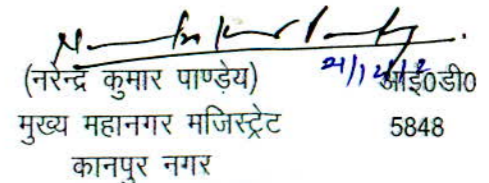 (नरेन्द्र कुमार पाण्ड़ेय) आई0डी0
मुख्य महानगर मजिस्ट्रेट 5848
कानपुर नगर